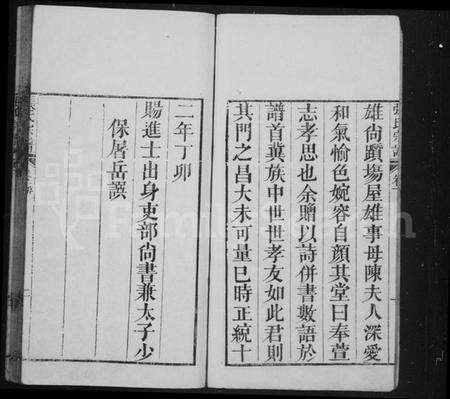 雄尙躓塲屋雄事母陳夫人深愛
和氣愉色婉容自顏其堂曰奉萱
志孝思也余贈以詩併書數語於
譜首冀族中世世孝友如此君則
其門之昌大未可量巳時正統十
二年丁卯
賜進士出身吏部尙書兼太子少
保屠岳譔